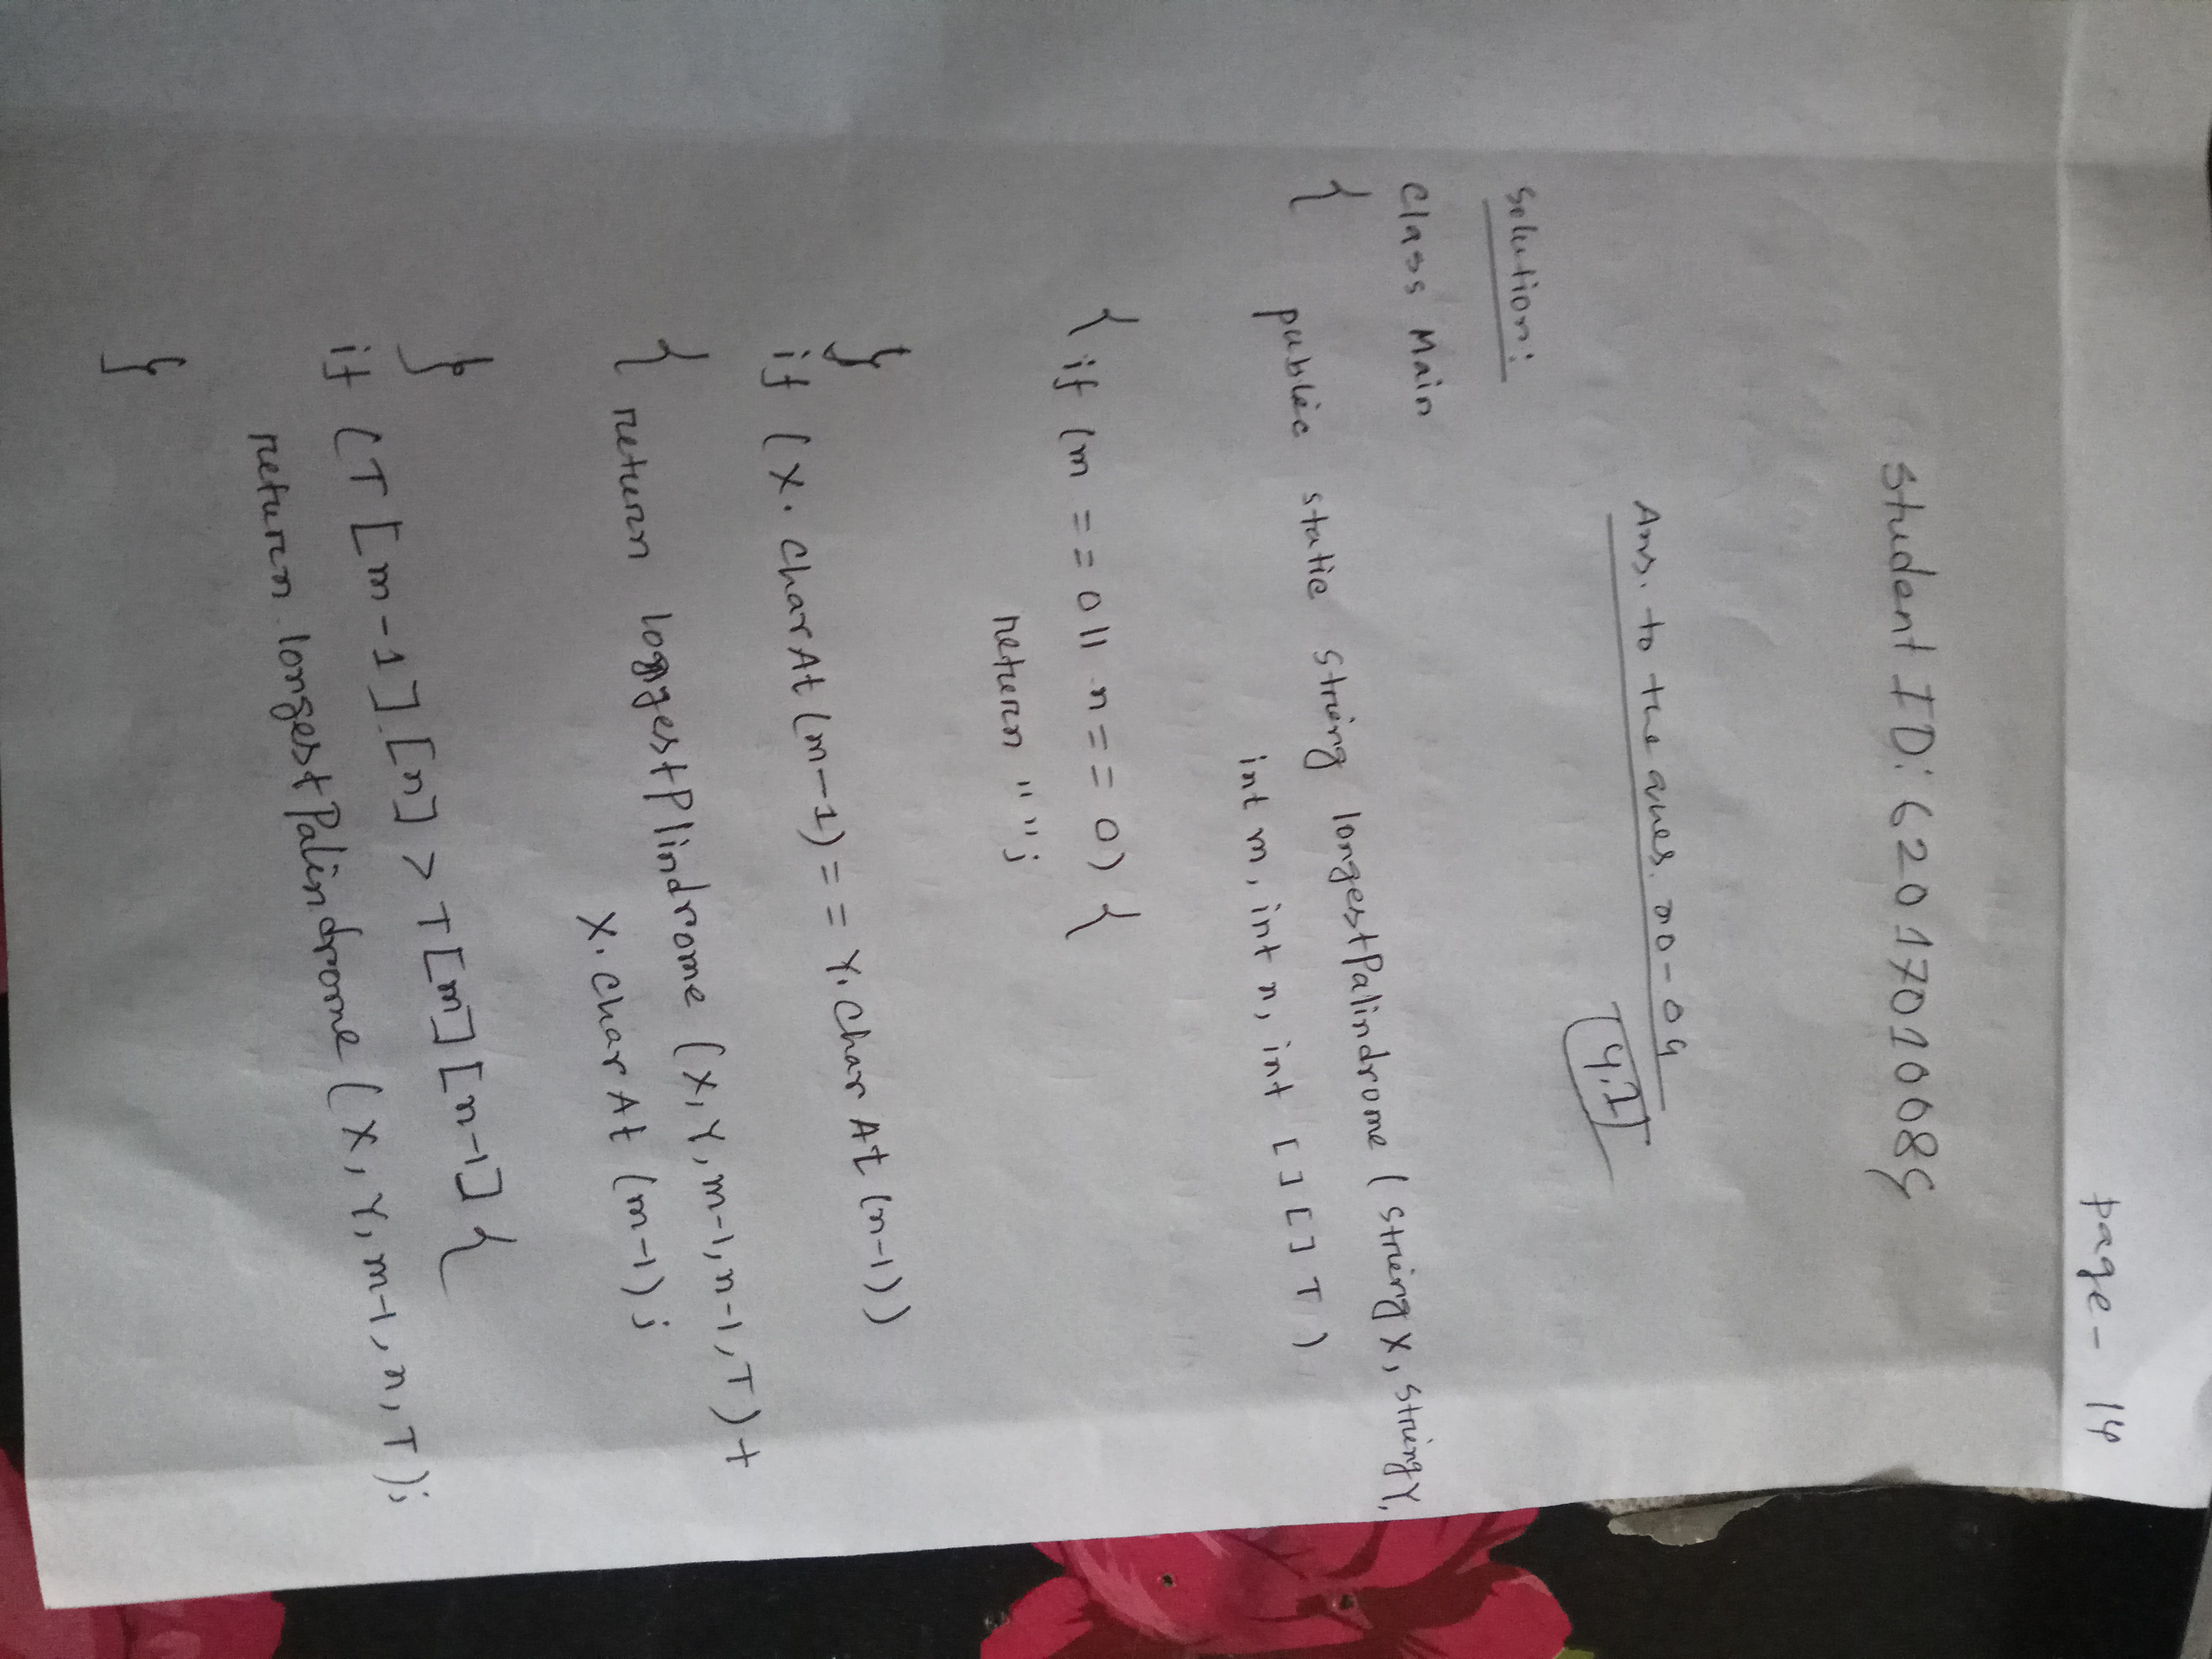 page - 14
Student ID: 62017010089
Ans. to the ques. no - 04
4.1
Solution:
Class Main
{ public static string longestPalindrome (string X, string Y,
int m, int n, int [] [] T)
{ if (m == 0 || n == 0) {
return " ";
}
if (X. charAt (m-1) == Y. charAt (n-1))
{ return loggestPlindrome (X, Y, m-1, n-1, T) +
X. charAt (m-1);
}
if (T [m-1] [n] > T [m] [n-1] {
return longestPalindrome (X, Y, m-1, n, T);
}